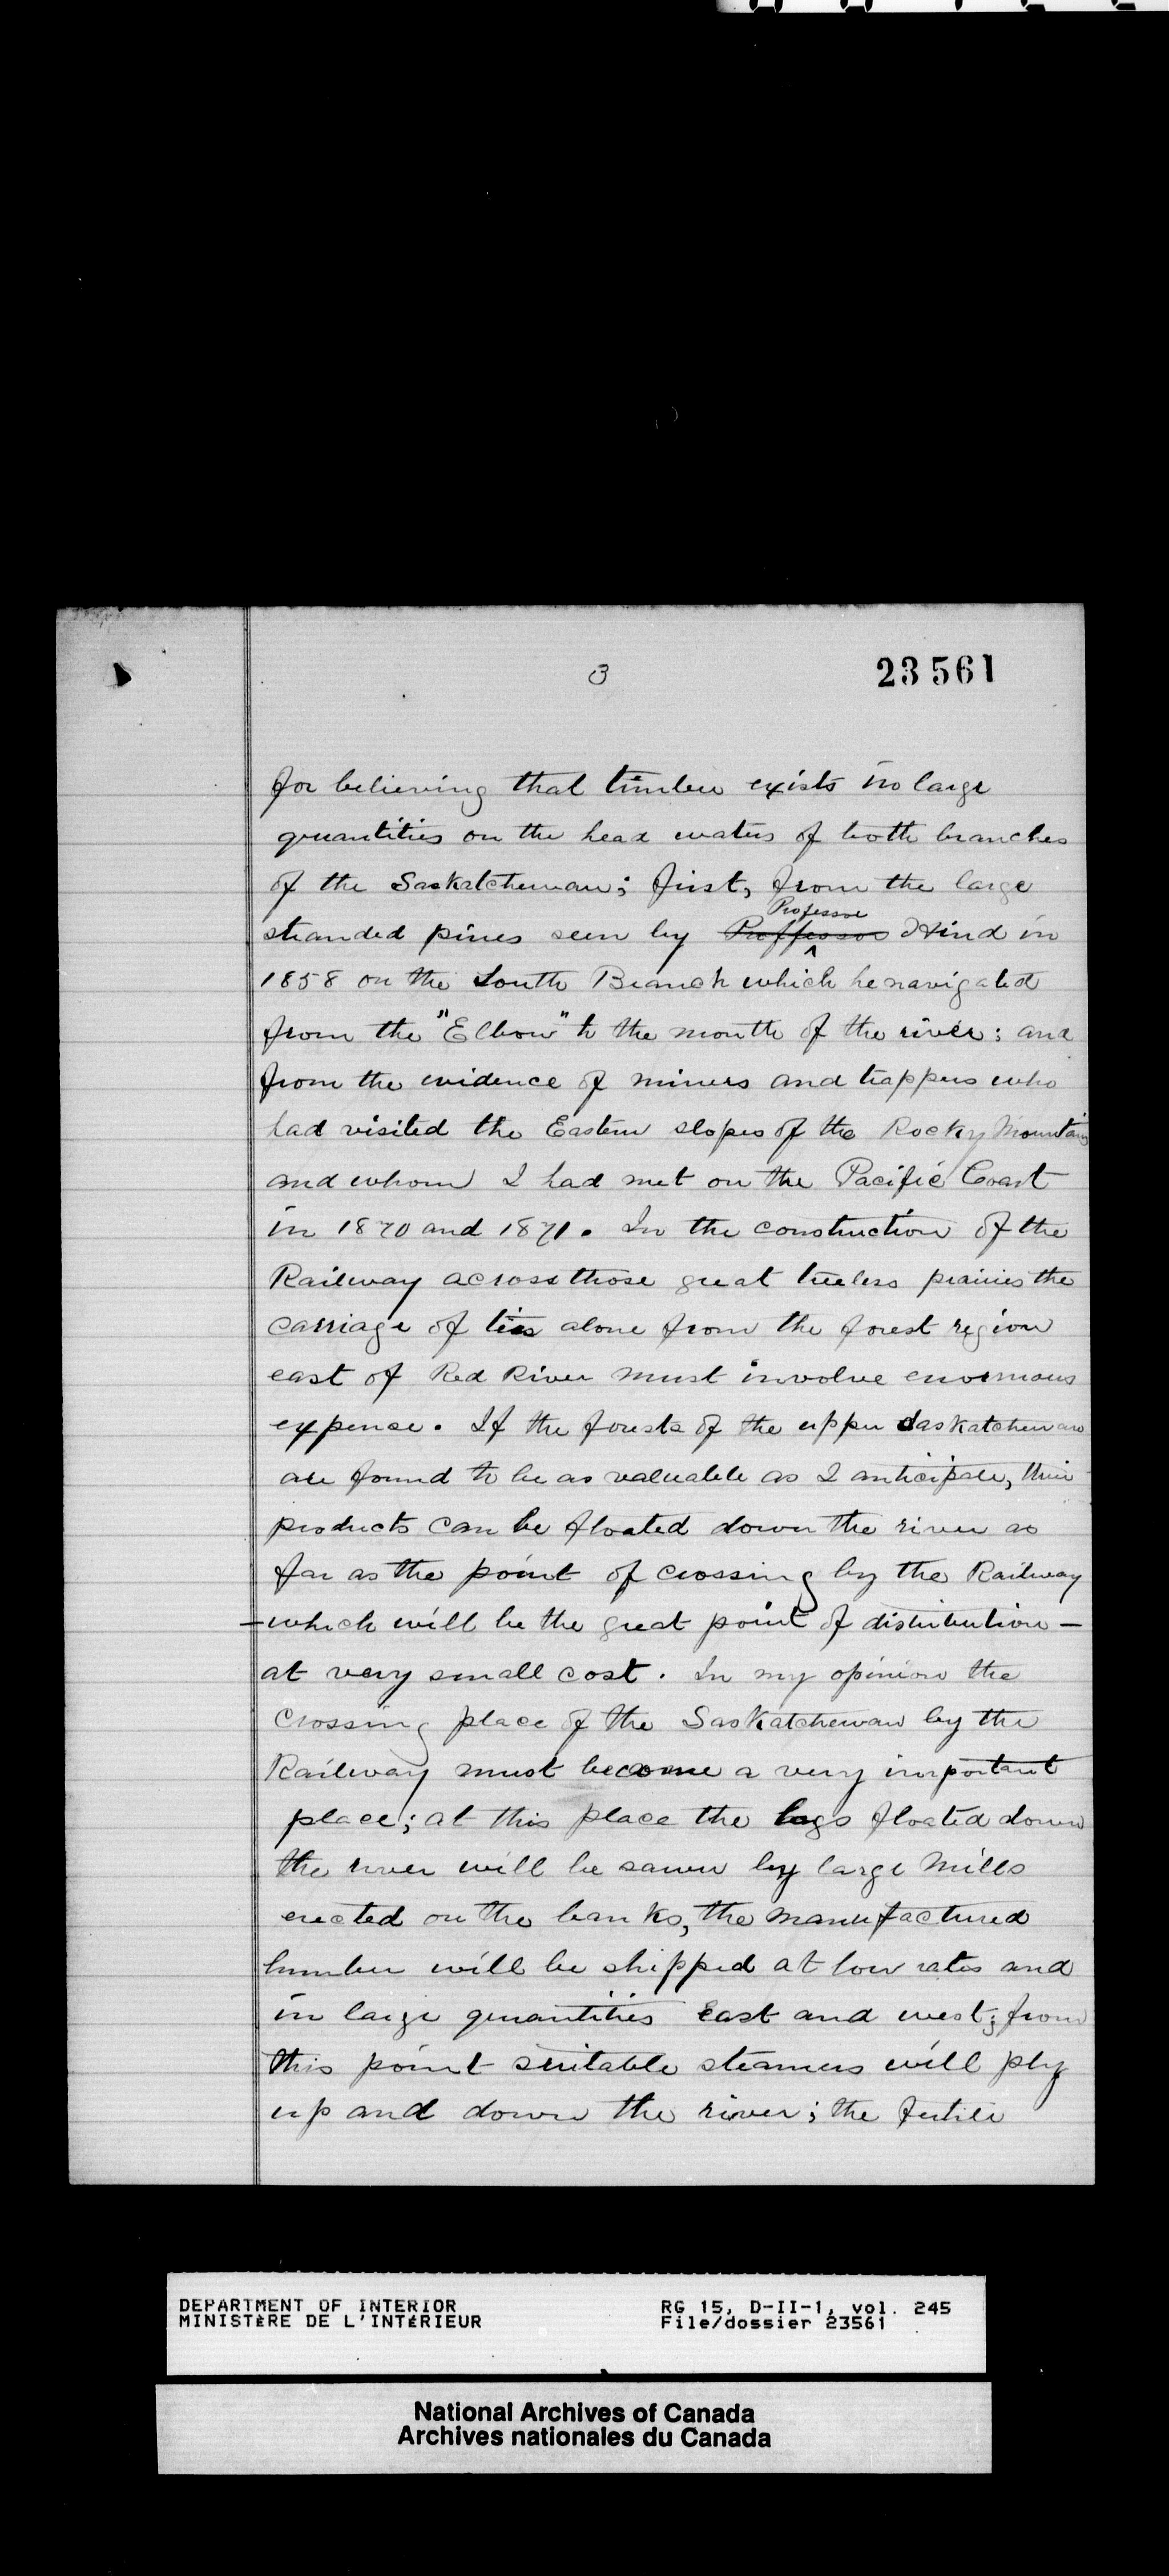 3
23561
for believing that timber exists in large
quantities on the head waters of both branches
of the Saskatchewan; first, from the large
Professor
stranded pines seen by Proffessor Hind in
1858 on the South Branch which he navigated
from the "Elbow" to the mouth of the river; and
from the evidence of miners and trappers who
had visited the Eastern slopes of the Rocky Mountains
and whom I had met on the Pacific Coast
in 1870 and 1871. In the construction of the
Railway across those great treeless prairies the
carriage of ties alone from the forest region
east of Red River must involve enormous
expense. If the forests of the upper Saskatchewan
are found to be as valuable as I anticipate, their
products can be floated down the river as
far as the point of crossing by the Railway
—which will be the great point of distribution—
at very small cost. In my opinion the
crossing place of the Saskatchewan by the
Railway must become a very important
place; at this place the logs floated down
the river will be sawn by large Mills
erected on the banks, the manufactured
lumber will be shipped at low rates and
in large quantities East and west; from
this point suitable steamers will ply
up and down the river; the fertile
DEPARTMENT OF INTERIOR
MINISTÈRE DE L'INTÉRIEUR
RG 15, D-II-1, vol. 245
File/dossier 23561
National Archives of Canada
Archives nationales du Canada